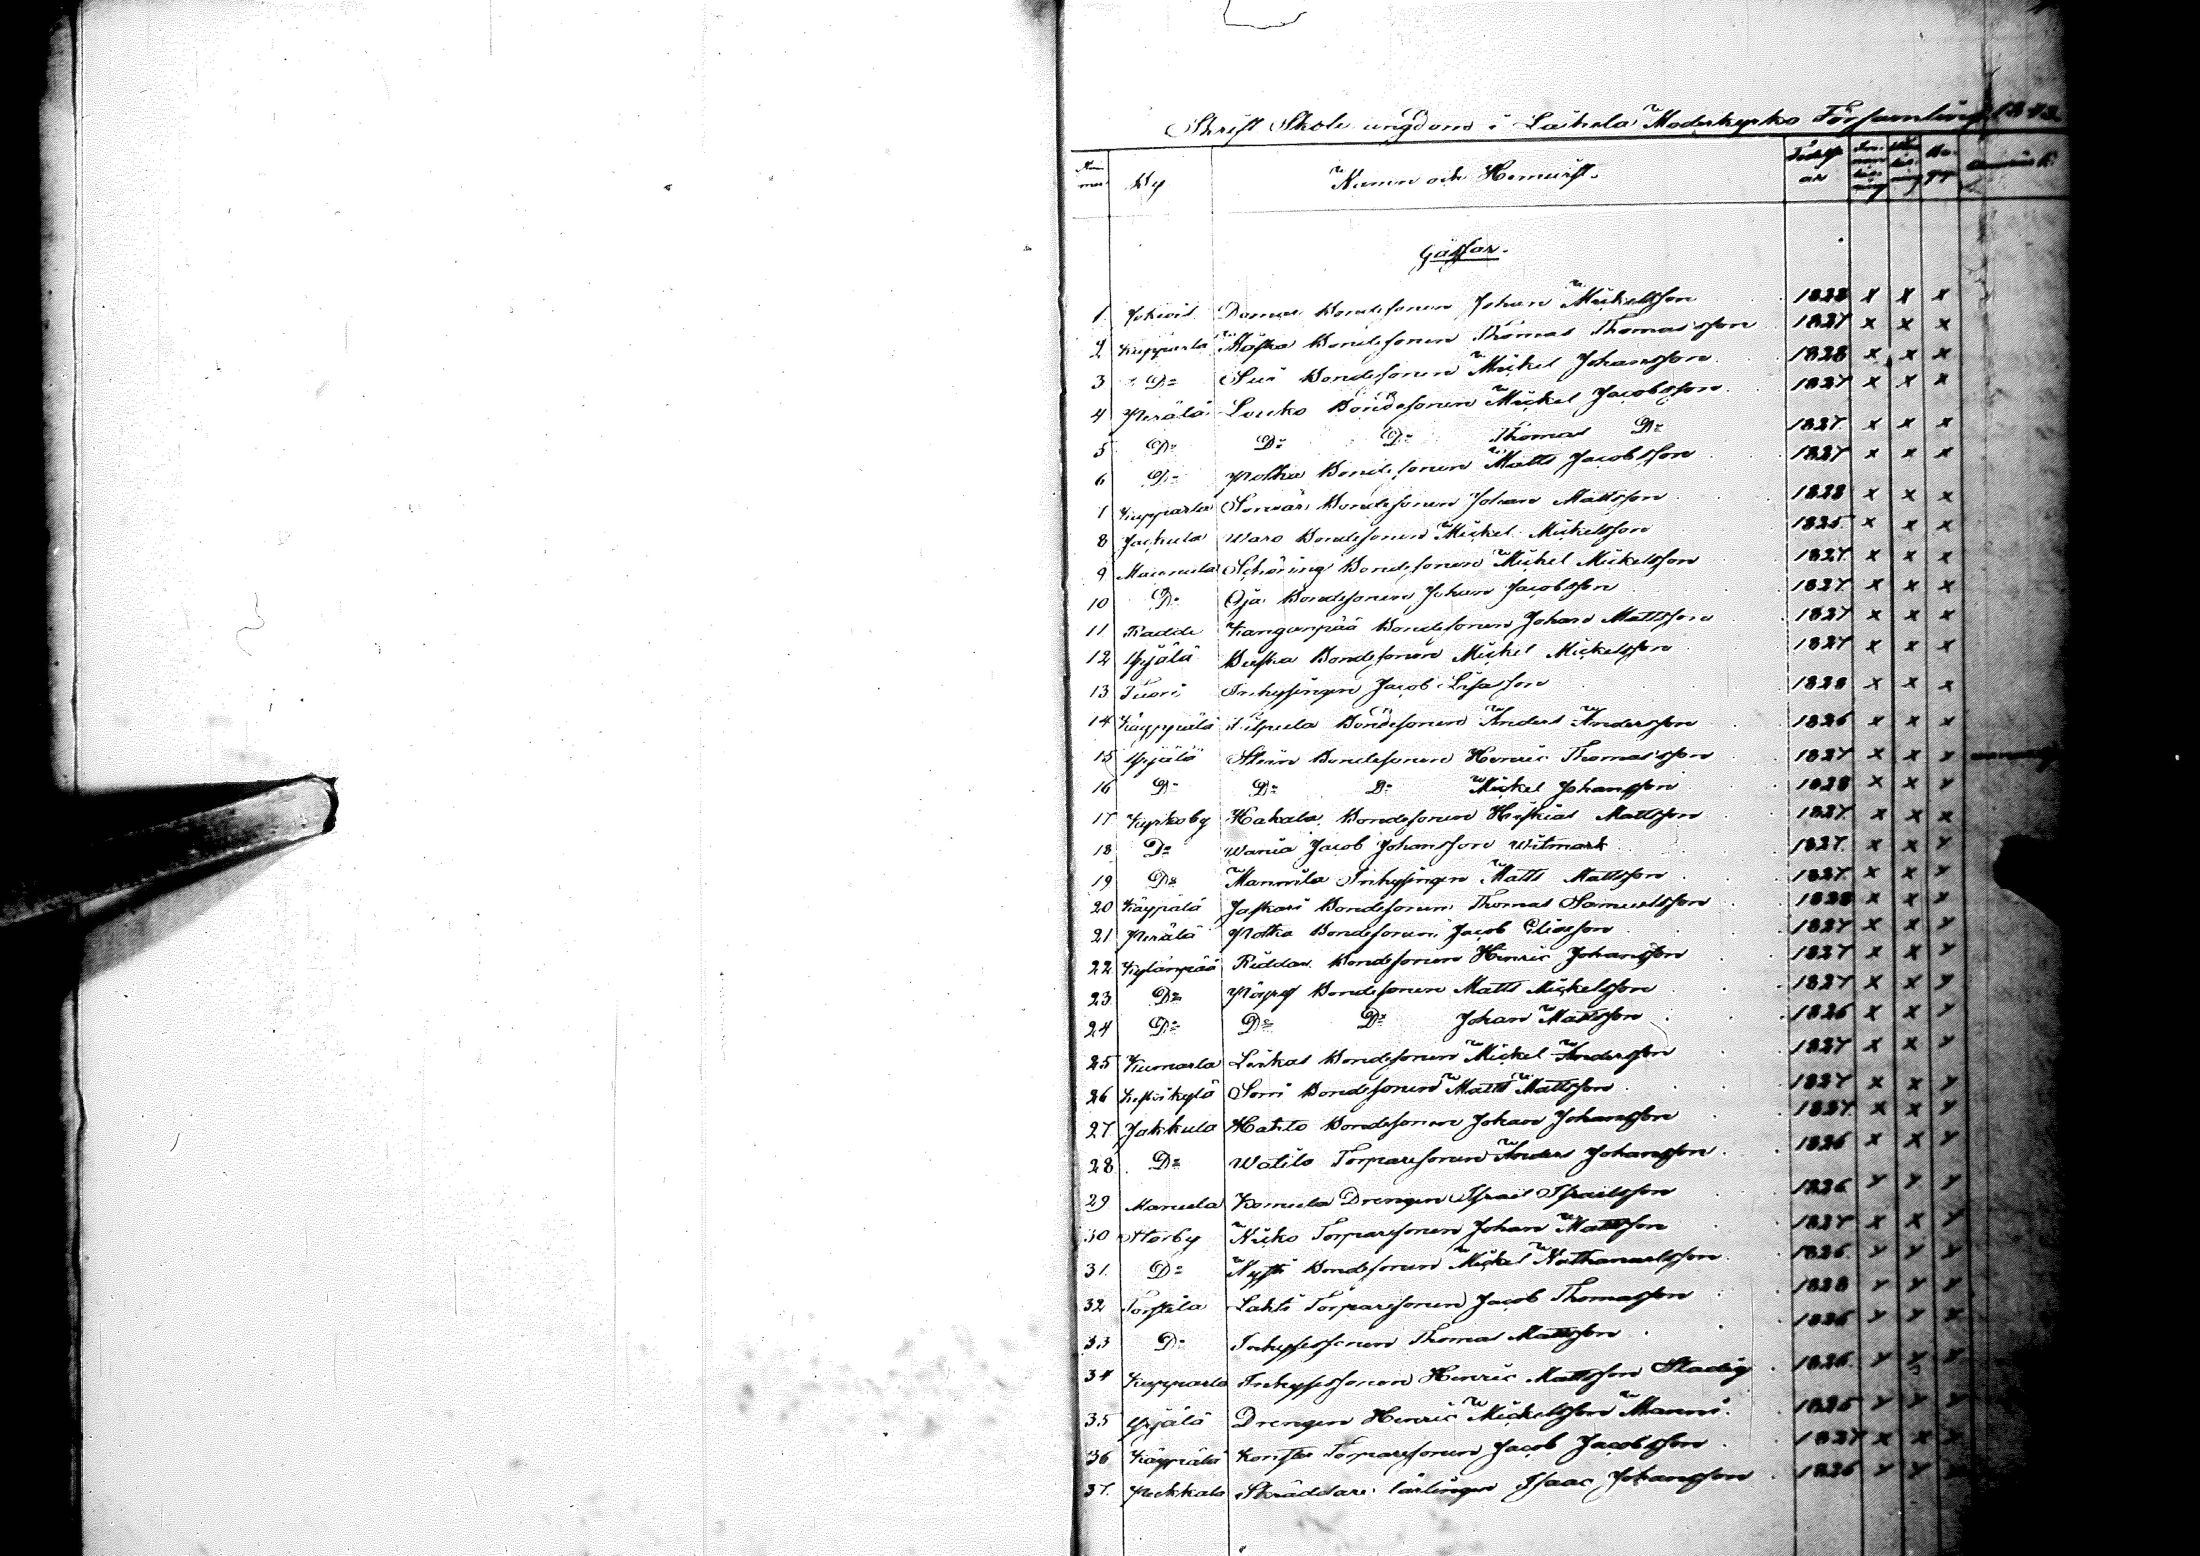 Skrift Skole ungdom i Laihela Moderkyrko Församling 1843
Nummer By Namn och Hemvist. Födelse år
Gåssar.
1 Jokivis Bondesonen Johan Mickelsson 1828 x x x
2 Kupparla Bondesonen Thomas Thomasson 1827 x x x
3 Do Bondesonen Mickel Johansson 1828 x x x
4 Perälä Louko Bondesonen Mickel Jacobsson 1827 x x x
5 Do Do Do Thomas Do 1827 x x x
6 Do Potka Bondesonen Matts Jacobsson 1827 x x x
7 Kupparla Bondesonen Johan Mattsson 1828 x x x
8 Jackula Waro Bondesonen Mickel Mickelsson 1825 x x x
9 Maunula Schöring Bondesonen Mickel Mickelsson 1827 x x x
10 Do Oja Bondesonen Johan Jacobsson 1827 x x x
11 Radde Kanganpää Bondesonen Johan Mattsson 1827 x x x
12 Yrjälä Buska Bondesonen Mickel Mickelsson 1827 x x x
13 Tuori Inhysingen Jacob Lisasson 1828 x x x
14 Käyppälä Bondesonen Anders Andersson 1826 x x x
15 Yrjälä Bondesonen Henric Thomasson 1827 x x x
16 Do Do Do Mickel Johansson 1828 x x x
17 Kyrkoby Hakala Bondesonen Hiskias Mattsson 1827 x x x
18 Do Wania Jacob Johansson Witmark 1827 x x x
19 Do Mannila Inhysingen Matts Mattsson 1827 x x x
20 Käypälä Jaskari Bondesonen Thomas Samuelsson 1828 x x x
21 Perälä Potka Bondesonen Jacob Eliasson 1827 x x x
22 Kylänpää Riddar Bondesonen Henric Johansson 1827 x x x
23 Do Bondesonen Matts Mickelsson 1827 x x x
24 Do Do Do Johan Mattsson 1826 x x x
25 Kumarla Luikas Bondesonen Mickel Andersson 1827 x x x
26 Keskikylä Soni Bondesonen Matts Mattsson 1827 x x x
27 Jakkula Bondesonen Johan Johansson 1827 x x x
28 Do Watilo Torparesonen Anders Johansson 1826 x x x
29 Manula Komula Drengen Israel Israelsson 1826 x x x
30 Storby Niko Torparesonen Johan Mattsson 1827 x x x
31 Do Nysti Bondesonen Mickel Nathanaelsson 1826 x x x
32 Torstila Lahti Torparesonen Jacob Thomasson 1828 x x x
33 Do Inhysessonen Thomas Mattsson 1826 x x x
34 Kupparla Inhysessonen Henric Mattsson Stadig 1826 x x x
35 Yrjälä Drengen Henric Mickelsson Manni 1825 x x x
36 Käypälä Torparesonen Jacob Jacobsson 1827 x x x
37 Pekkala Skräddare lärlingen Isaac Johansson 1826 x x x